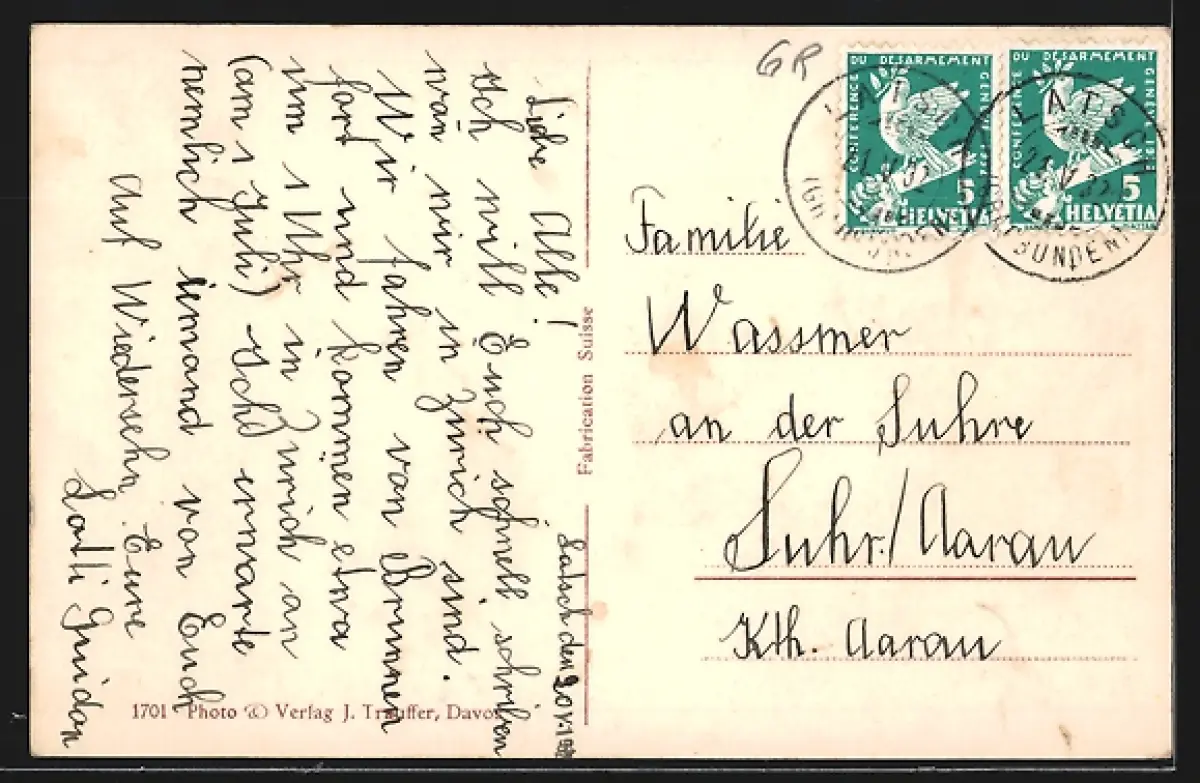 Latsch den 20.V.19
Liebe Alle!
Ich will Euch schnell schreiben
wan wir in Zürich sind.
Wir fahren von Brunnen
fort und kommen etwa
um 1 Uhr in Zürich an
(am 1 Juli) Ich erwarte
nemlich iemand von Euch
Auf Wiedersehn Eure
Fabrication Suisse
1701 Photo Verlag J. Trauffer, Davos
GR
CONFERENCE DU DESARMEMENT GENEVE 1932
5
HELVETIA
CONFERENCE DU DESARMEMENT GENEVE 1932
5
HELVETIA
LATSCH
Familie
Wassmer
an der Suhre
Suhr/Aarau
Kth. Aarau